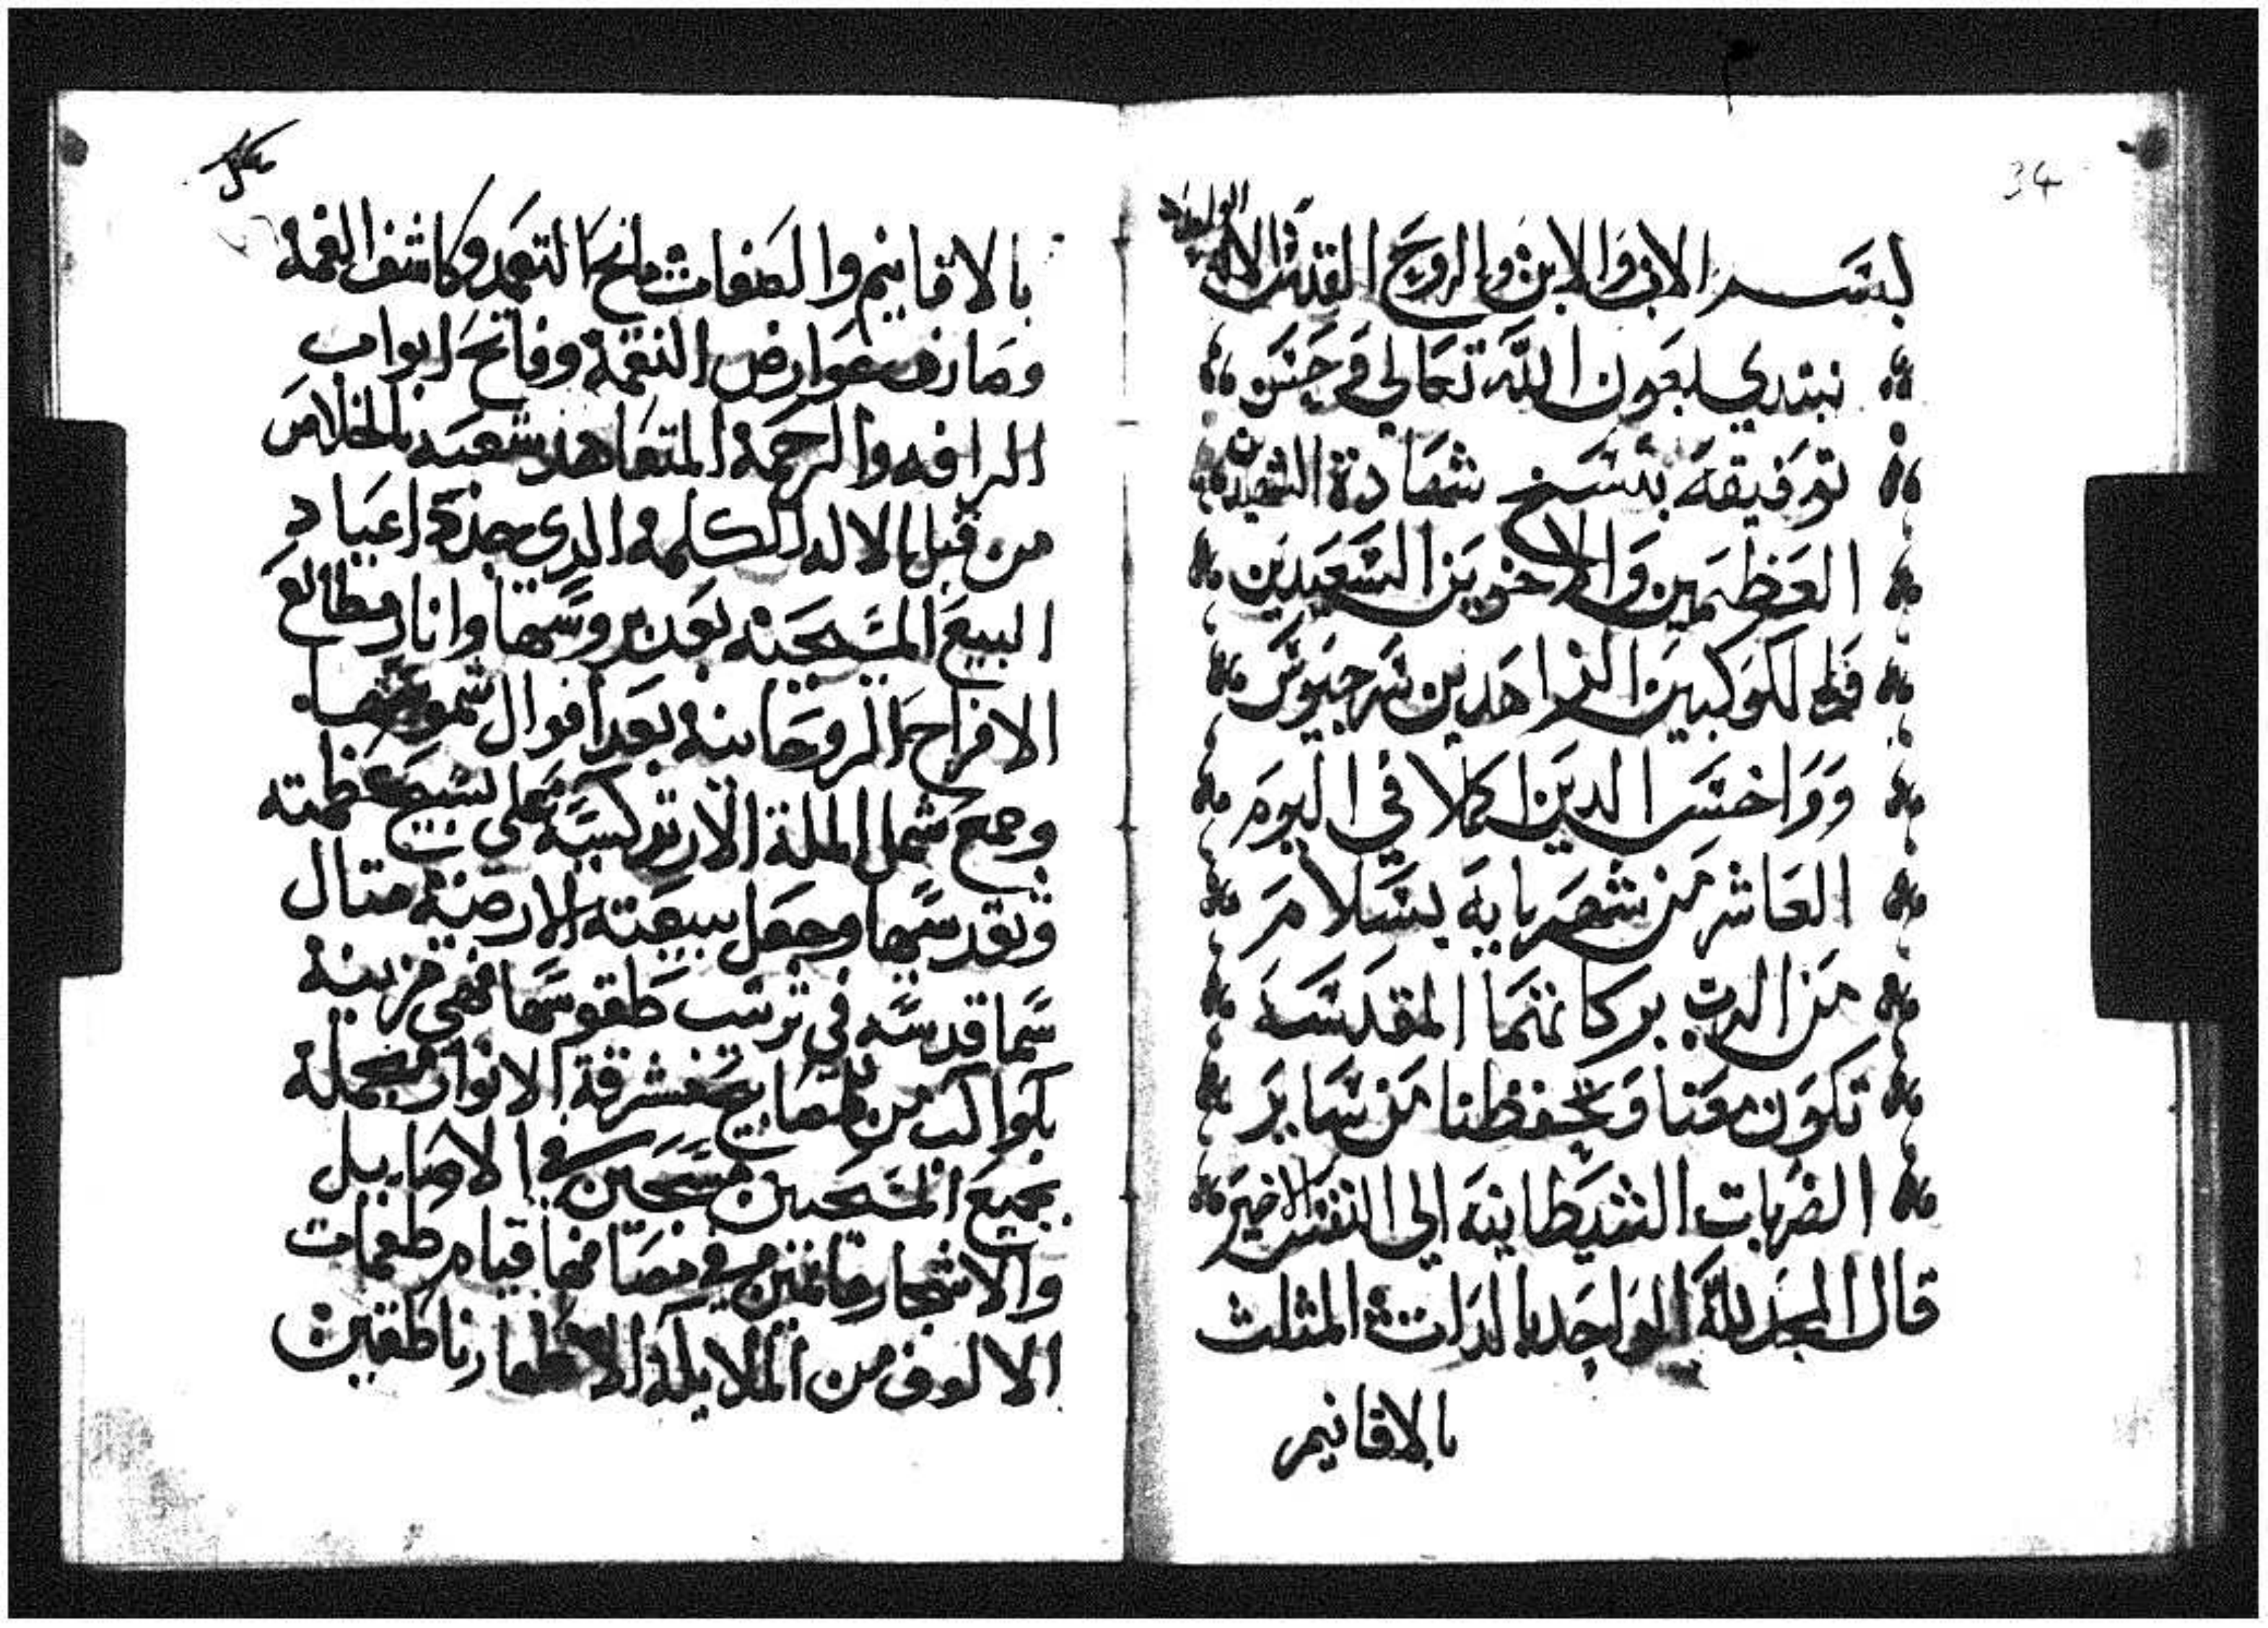 34
بسم الاب والابن والروح القدس الاله الواحد
نبتدي بعون الله تعالي وحسن
توفيقه بنسخ شهادة الشهيدين
العظيمين والاخوين السعيدين
والكوكبين الزاهدين سرجيوس
وواخس الدين اكملا في اليوم
العاشر من شهر بابه بسلام
من الرب بركاتهما المقدسه
تكون معنا وتحفظنا من ساير
الضربات الشيطانيه الي النفس الاخير
قال المجد لله الواحد بالدات المثلث
بالاقانيم
بالاقانيم والصفات مانح النعمه وكاشف الغمه
وصارف عوارض النقمة وفاتح ابواب
الرافه والرحمة المتعاهد شعبه بالخلاص
من قبل بالاله الكلمة الدي جدد اعياد
البيع المسيحيه بعد دروسها وانار مطالع
الافراح الروحانيه بعد افوال شموسها
وجمع شمل الملة الارتدكسية علي تسبيح عظمته
وتقديسها وجعل بيعته الارضية متال
سما قدسه في ترتيب طقوسها فهي مزينة
بكواكب من المصابيح مشرقة الانوار مجملة
بجميع المسيحيين مسبحين في الاصايل
والاسحار قايمين في مصافها قيام طغمات
الالوف من الملايكه الاطهار ناطقين